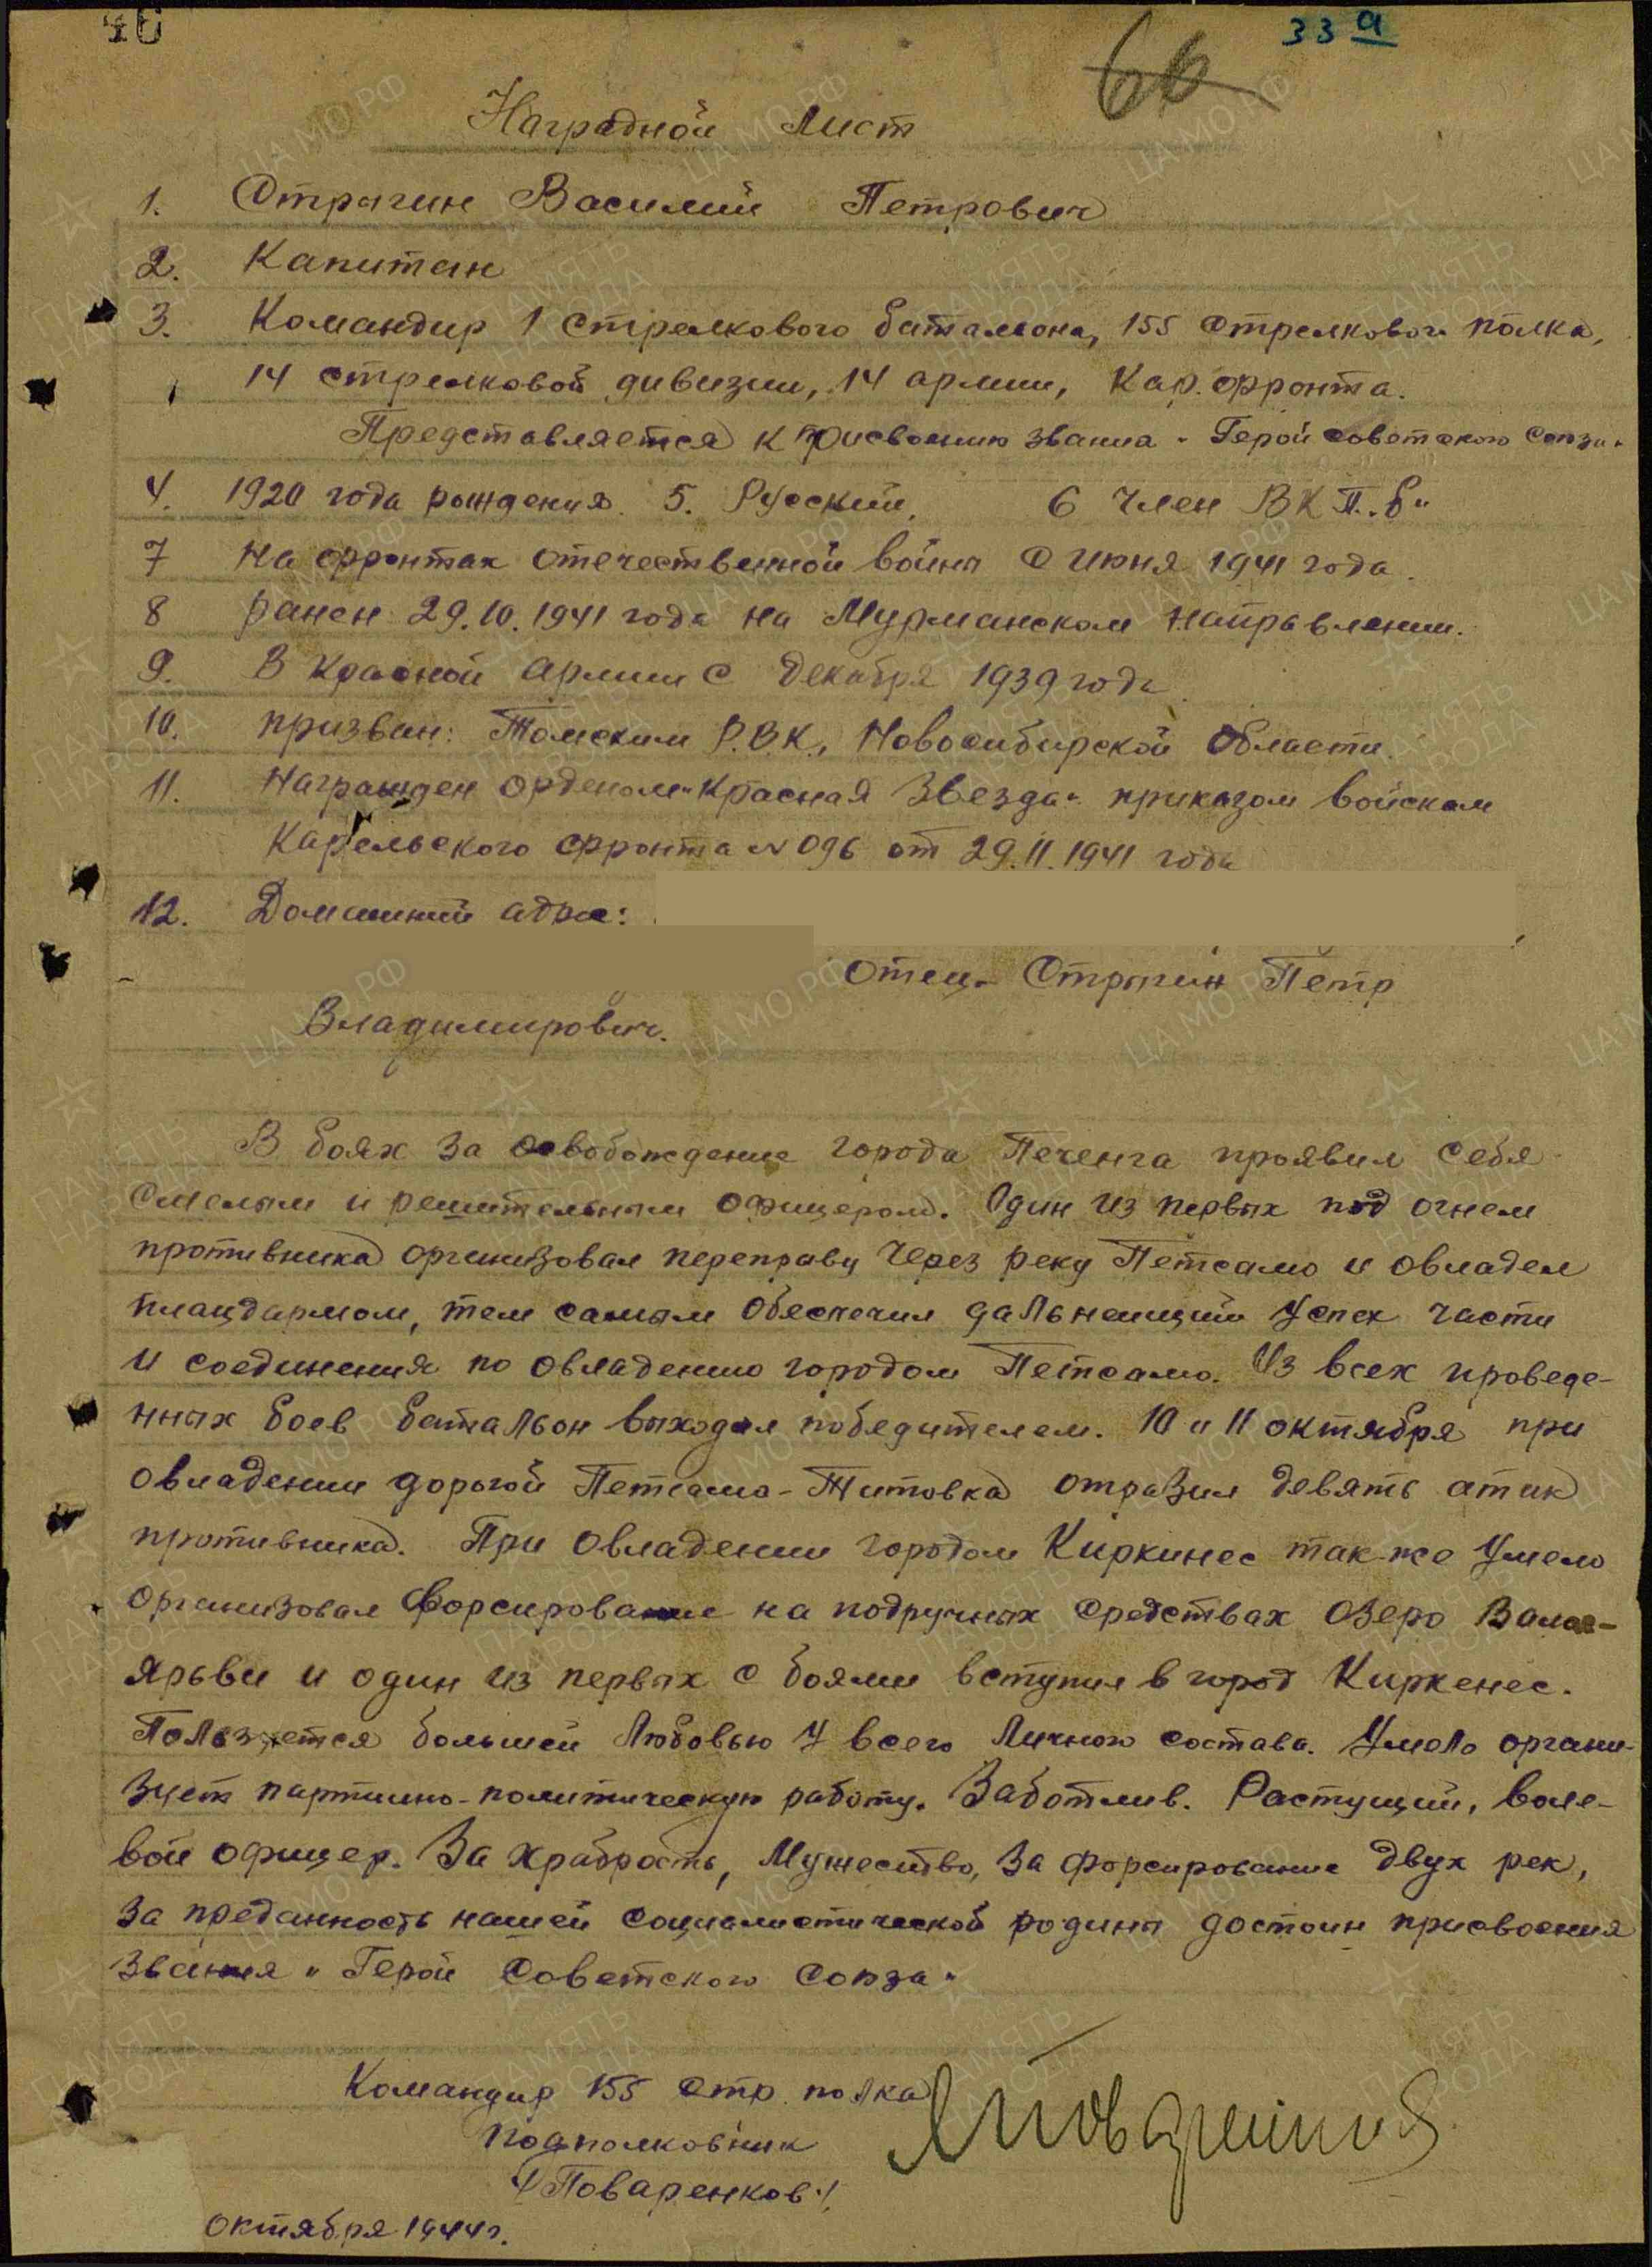 46
66
33 а
Наградной Лист
1. Стрыгин Василий Петрович
2. Капитан
3. Командир 1 стрелкового батальона, 155 стрелковог полка,
14 стрелковой дивизии, 14 армии, Кар. фронта.
Представляется к присвоению звания "Герой советского Союза"
4. 1920 года рождения. 5. Русский. 6 Член ВКП."б"
7 На фронтах отечественной войны с июня 1941 года.
8 ранен 29.10.1941 года на Мурманском направлении.
9. В Красной армии с декабря 1939 года
10. призван: Томским Р.В.К., Новосибирской Области.
11. Награжден орденом "Красная Звезда" приказом войскам
Карельского фронта № 096 от 29.11.1941 года
12. Домашний адрес:
отец - Стрыгин Петр
Владимирович.
В боях за освобождение города Печенга проявил себя
смелым и решительным офицером. Один из первых под огнем
противника организовал переправу через реку Петсамо и овладел
плацдармом, тем самым обеспечил дальнейщий успех части
и соединения по овладению городом Петсамо. Из всех проведе-
нных боев батальон выходил победителем. 10 и 11 октября при
овладении дорогой Петсамо-Титовка отразил девять атак
противника. При овладении городом Киркинес так-же умело
организовал форсирование на подручных средствах озеро
ярьви и один из первых с боями вступил в город Киркенес.
Пользуется большей любовью у всего личного состава. Умело органи-
зует партийно-политическую работу. Заботлив. Растущий, воле-
вой офицер. За храбрость, мужество, за форсирование двух рек,
за преданность нашей социалистической родины достоин присвоения
звания "Герой Советского Союза"
Командир 155 стр. полка
Подполковник
/Поваренков/
октября 1944 г.